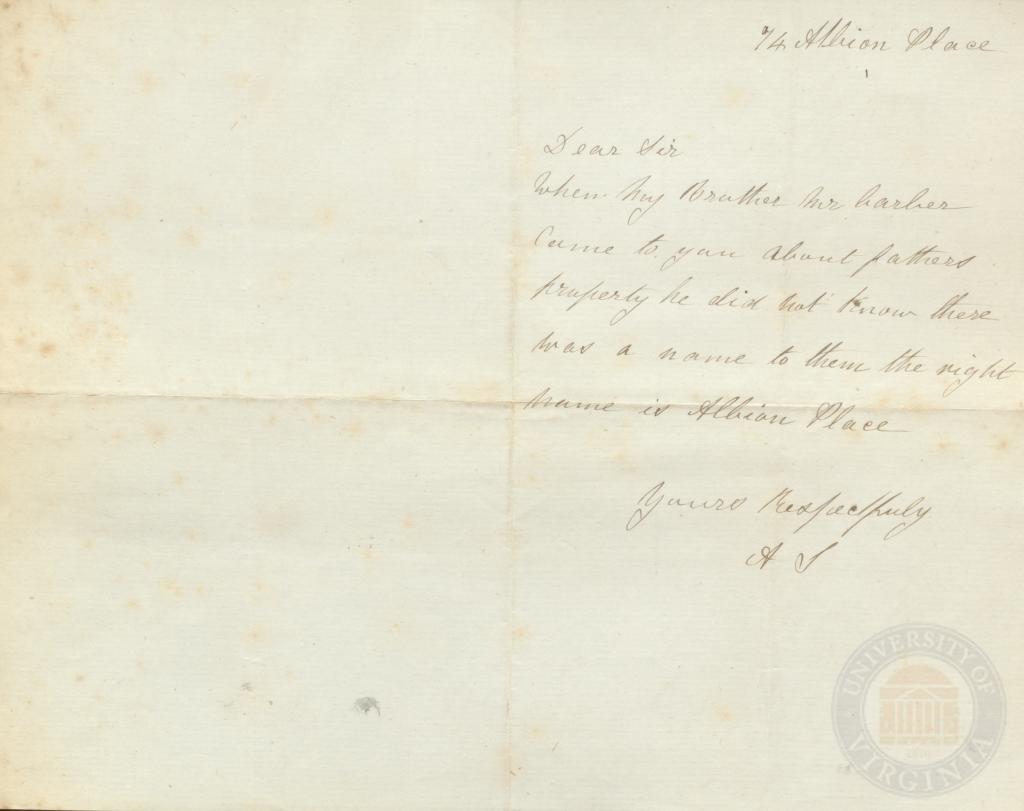 74 Albion Place
Dear Sir
When my Brother Mr Barber
Came to you about fathers
property he did not Know there
was a name to them the right
name is Albion Place
Yours Respectfuly
A S
UNIVERSITY OF VIRGINIA
1819